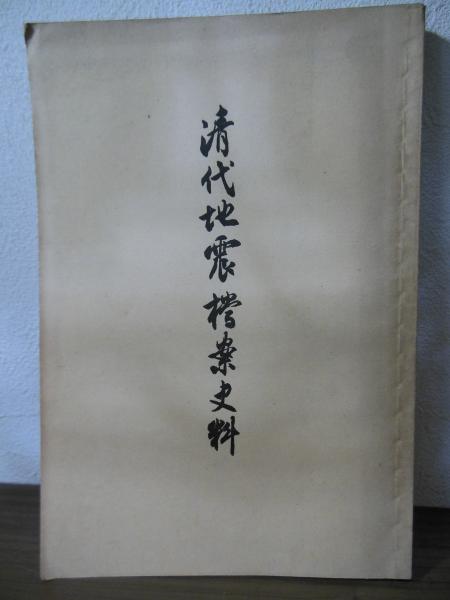 清代地震檔案史料